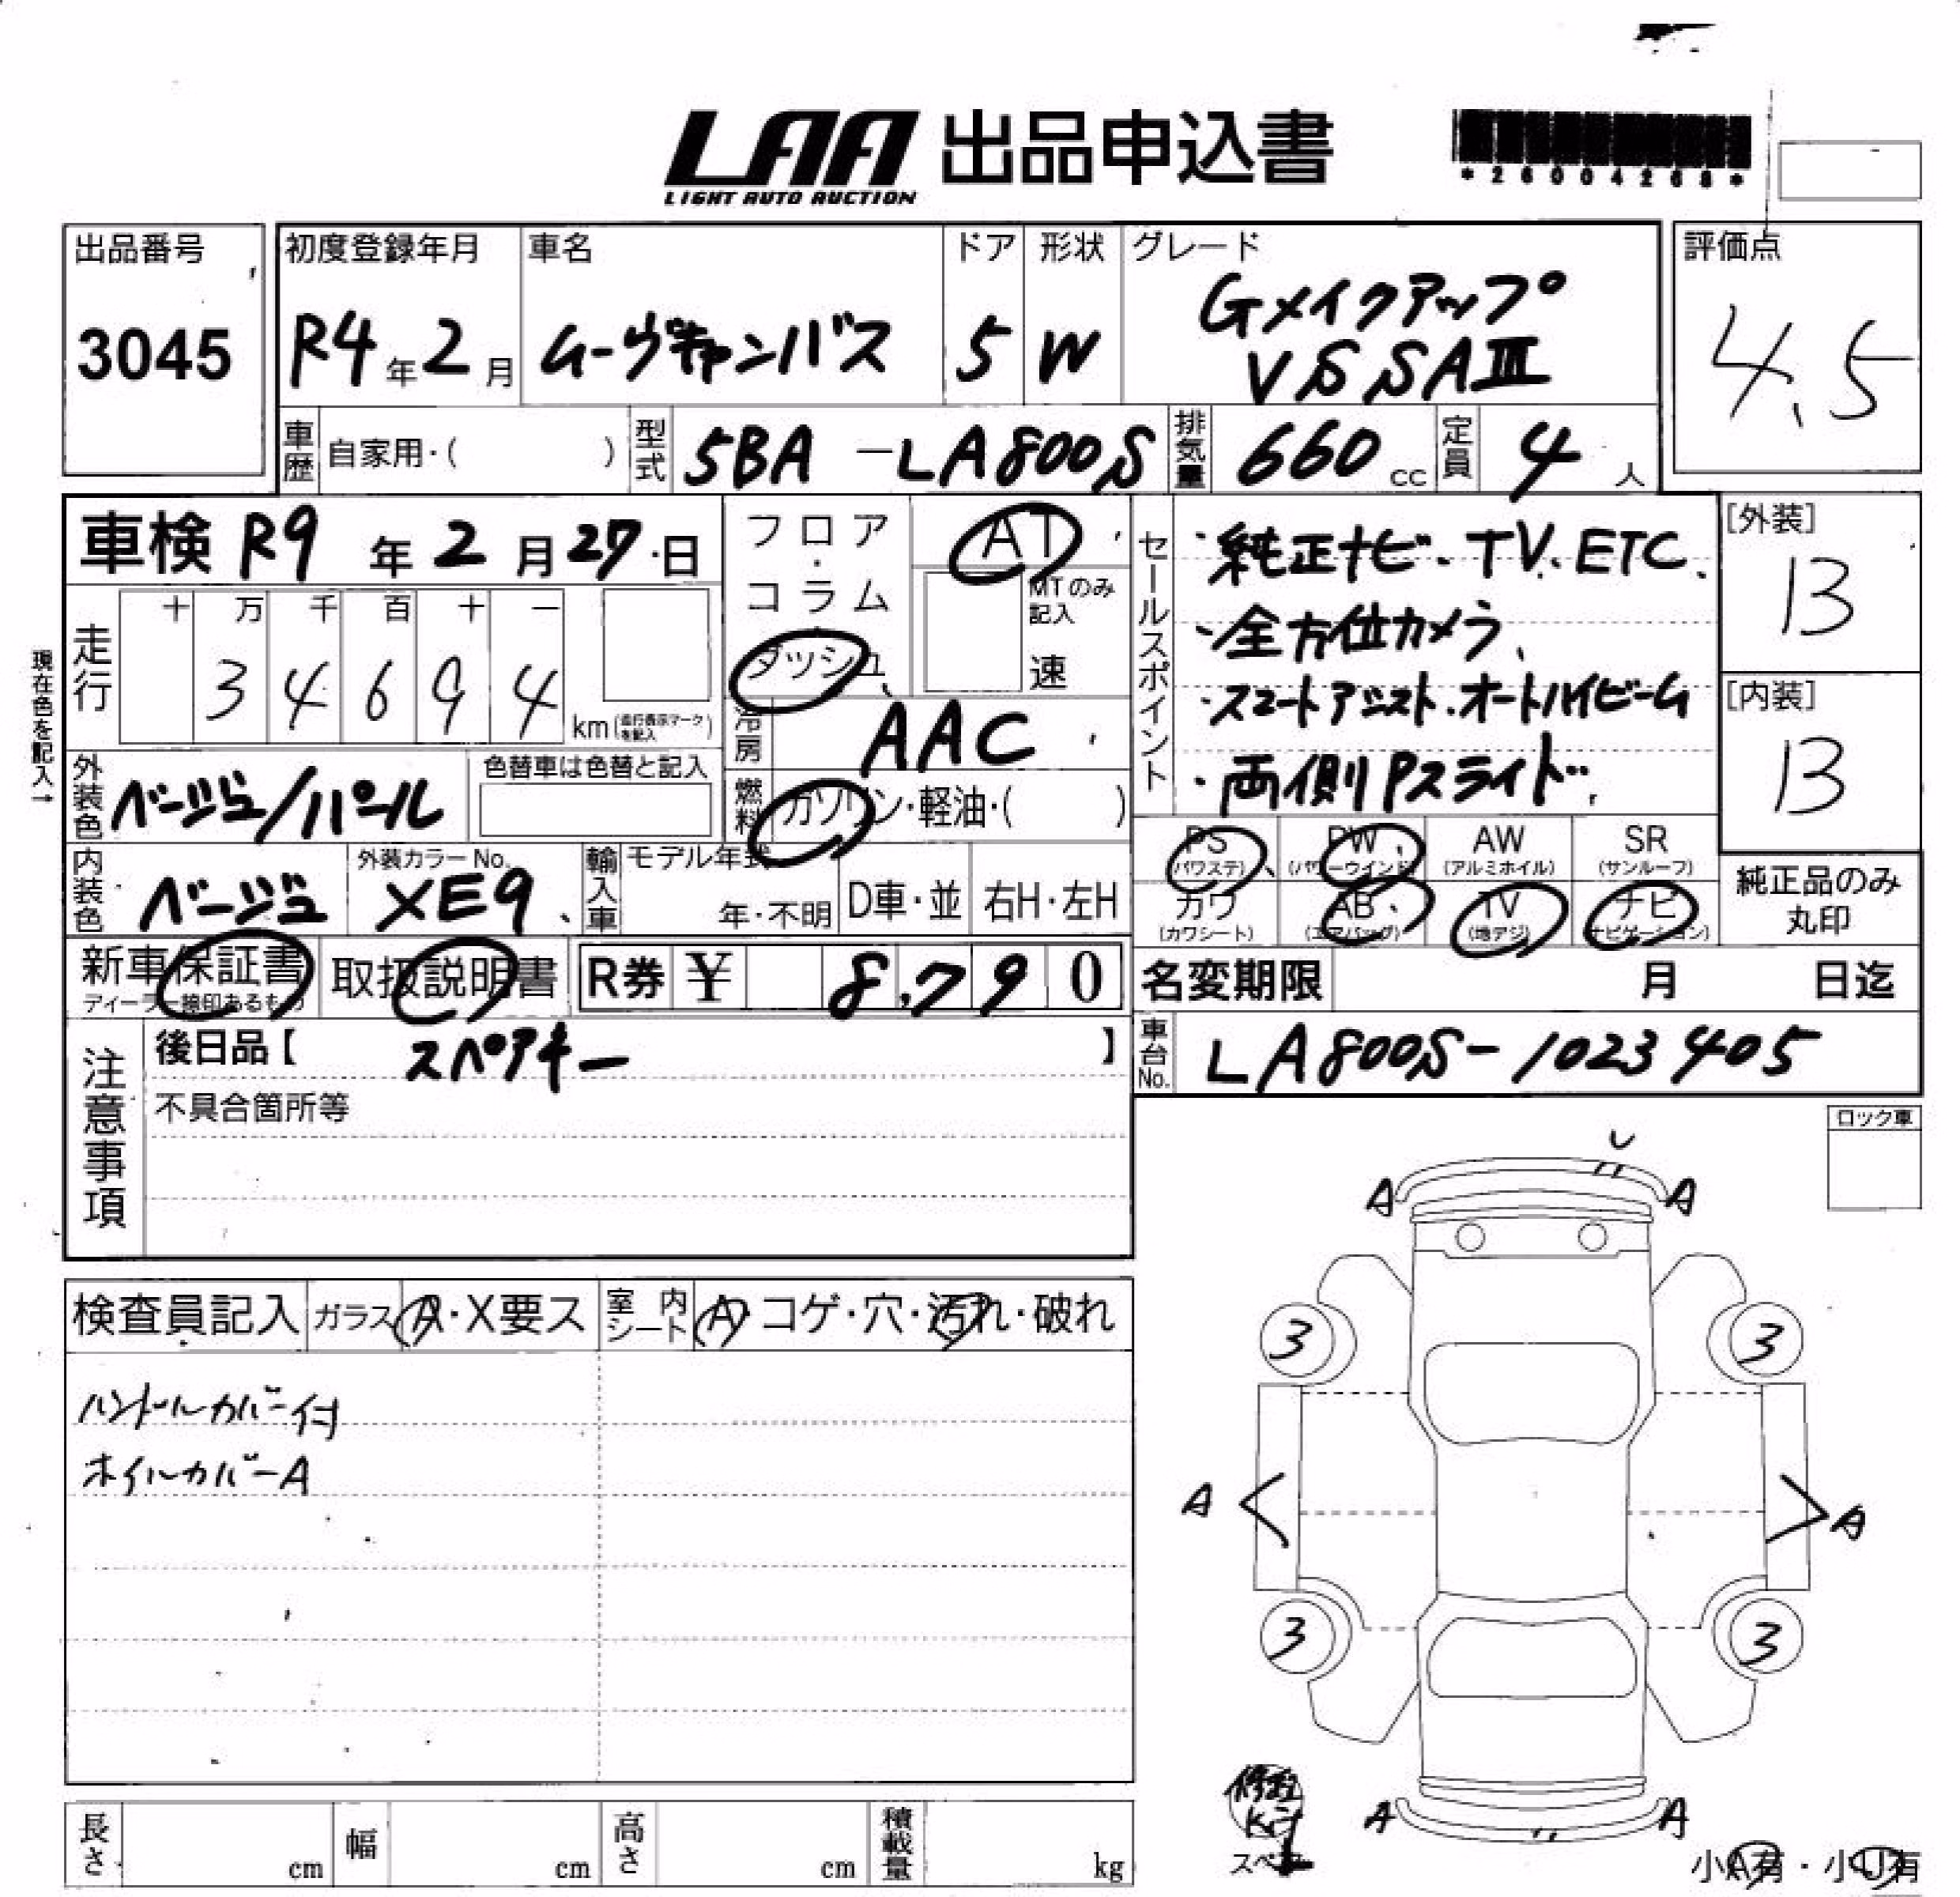 LAA 出品申込書
LIGHT AUTO AUCTION
*26004268*
出品番号
3045
初度登録年月
R4年2月
車名
ムーヴキャンバス
ドア
5
形状
W
グレード
Gメイクアップ
VS SAⅢ
評価点
4.5
車歴 自家用・( )
型式 5BA-LA800S
排気量 660cc
定員 4人
車検 R9年2月27日
フロア・コラム・ダッシュ
AT
MTのみ記入
速
現在色を記入→
走行 十万千百十一
34694
km(走行表示マークを記入)
冷房 AAC
外装色 ベージュ/パール
色替車は色替と記入
燃料 ガソリン・軽油・( )
内装色 ベージュ
外装カラーNo.
XE9
輸入車 モデル年式
年・不明 D車・並 右H・左H
新車保証書
ディーラー捺印あるもの
取扱説明書
R券 ¥ 8,790
セールスポイント
・純正ナビ、TV、ETC、
・全方位カメラ、
・スマートアシスト、オートハイビーム
・両側Pスライド、
[外装]
B
[内装]
B
PS (パワステ)
PW (パワーウインド)
AW (アルミホイル)
SR (サンルーフ)
カワ (カワシート)
AB (エアバッグ)
TV (地デジ)
ナビ (ナビゲーション)
純正品のみ丸印
名変期限 月 日迄
車台No. LA800S-1023405
注意事項
後日品【 スペアキー 】
不具合箇所等
ロック車
検査員記入
ガラス A・X要ス
室内シート A・コゲ・穴・汚れ・破れ
ハンドルカバー付
ホイルカバーA
U
A A
3 3
A A
3 3
A A
修理
Kit
スペア
小A有・小U有
長さ cm
幅 cm
高さ cm
積載量 kg